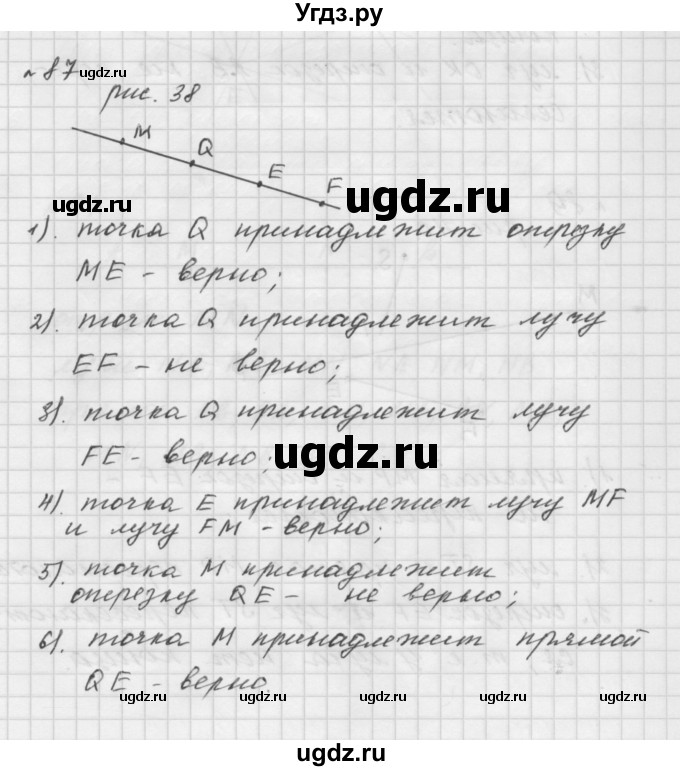 Угдз.ру
№ 87 ugdz.ru
рис. 38
M
Q
E
F
ugdz.ru ugdz.ru
1). точка Q принадлежит отрезку
ME - верно;
ugdz.ru
2). точка Q принадлежит лучу
EF - не верно;
ugdz.ru
3). точка Q принадлежит лучу
FE - верно;
ugdz.ru
4). точка E принадлежит лучу MF
и лучу FM - верно;
ugdz.ru
5). точка M принадлежит
отрезку QE - не верно;
6). точка M принадлежит прямой
QE - верно.
ugdz.ru ugdz.ru
ugdz.ru